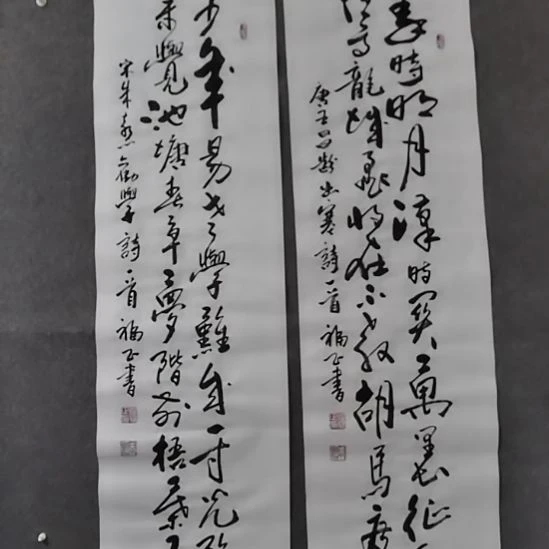 秦時明月漢時關萬里長征
但使龍城飛將在不教胡馬度
唐王昌齡出塞詩一首 福正書
少年易老學難成一寸光陰
未覺池塘春草夢階前梧葉
宋朱熹勸學詩一首 福正書